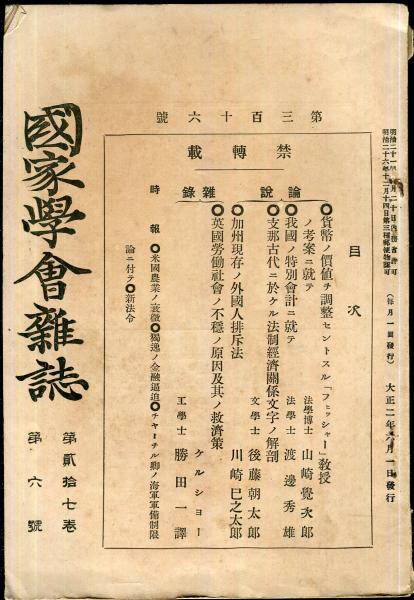 明治二十六年十二月十四日第三種郵便物認可
(毎月一回發行) 大正二年六月一日發行
第三百十六號
禁轉載
目次
論說
◎貨幣ノ價値ヲ調整セントスル「フ井ッシャー」敎授
ノ考案ニ就テ
法學博士 山崎覺次郎
◎我國ノ特別會計ニ就テ
法學士 渡邊秀雄
◎支那古代ニ於ケル法制經濟關係文字ノ解剖
文學士 後藤朝太郎
雜錄
◎加州現存ノ外國人排斥法
川崎巳之太郎
◎英國勞働社會ノ不穩ノ原因及其ノ救濟策
ケルショー
工學士 勝田一譯
時報
◎米國農業ノ衰微◎獨逸ノ金融逼迫◎チャーチル卿ノ海軍軍備制限
論ニ付テ◎新法令
國家學會雜誌
第貳拾七卷 第六號